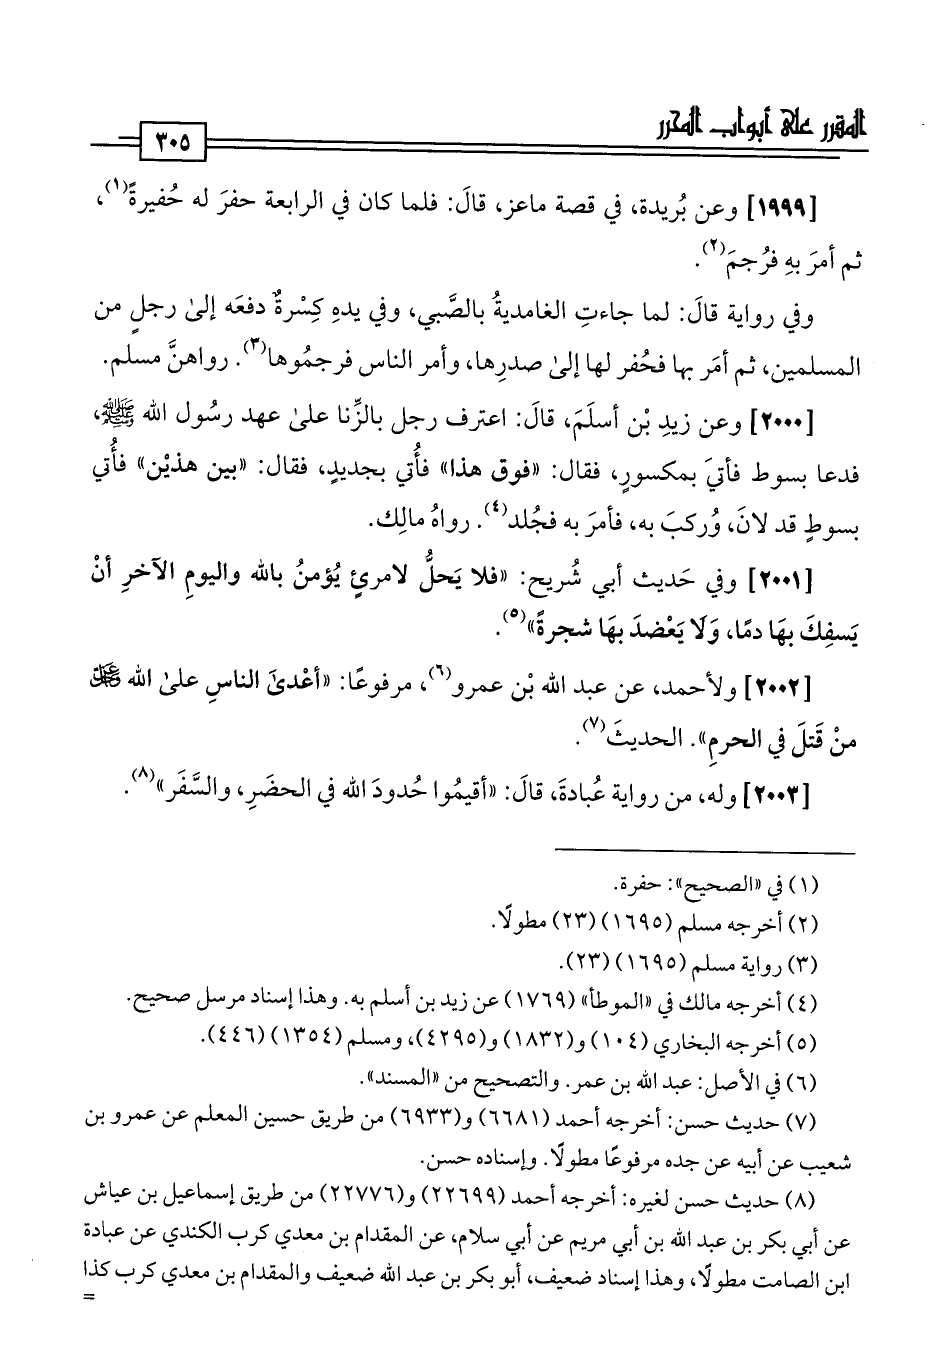 المقرر على أبواب المحرر
٣٠٥
[١٩٩٩] وعن بُريدة، في قصة ماعز، قالَ: فلما كان في الرابعة حفرَ له حُفيرةً(١)،
ثم أمرَ بهِ فرُجمَ(٢).
وفي رواية قالَ: لما جاءتِ الغامديةُ بالصَّبي، وفي يدهِ كِسْرةٌ دفعَه إلىٰ رجلٍ من
المسلمين، ثم أمَر بها فحُفر لها إلىٰ صدرِها، وأمر الناس فرجمُوها(٣). رواهنَّ مسلم.
[٢٠٠٠] وعن زيدِ بْن أسلَمَ، قالَ: اعترف رجل بالزِّنا علىٰ عهد رسُول الله ﷺ،
فدعا بسوط فأتيَ بمكسورٍ، فقال: «فوق هذا» فأُتي بجديدٍ، فقال: «بين هذيْن» فأُتي
بسوطٍ قد لانَ، وُركبَ به، فأمرَ به فجُلد(٤). رواهُ مالِك.
[٢٠٠١] وفي حَديث أبي شُريح: «فلا يَحلُّ لامرئٍ يُؤمنُ بالله واليومِ الآخرِ أنْ
يَسفِكَ بهَا دمًا، وَلَا يَعْضدَ بهَا شجرةً»(٥).
[٢٠٠٢] ولأحمد، عن عبد الله بْن عمرو(٦)، مرفوعًا: «أعْدىٰ الناسِ علىٰ الله ﷿
منْ قَتلَ في الحرمِ». الحديثَ(٧).
[٢٠٠٣] وله، من رواية عُبادةَ، قالَ: «أقيمُوا حُدودَ الله في الحضَرِ، والسَّفَر»(٨).
(١) في «الصحيح»: حفرة.
(٢) أخرجه مسلم (١٦٩٥) (٢٣) مطولًا.
(٣) رواية مسلم (١٦٩٥) (٢٣).
(٤) أخرجه مالك في «الموطأ» (١٧٦٩) عن زيد بن أسلم به. وهذا إسناد مرسل صحيح.
(٥) أخرجه البخاري (١٠٤) و(١٨٣٢) و(٤٢٩٥)، ومسلم (١٣٥٤) (٤٤٦).
(٦) في الأصل: عبد الله بن عمر. والتصحيح من «المسند».
(٧) حديث حسن: أخرجه أحمد (٦٦٨١) و(٦٩٣٣) من طريق حسين المعلم عن عمرو بن
شعيب عن أبيه عن جده مرفوعًا مطولًا. وإسناده حسن.
(٨) حديث حسن لغيره: أخرجه أحمد (٢٢٦٩٩) و(٢٢٧٧٦) من طريق إسماعيل بن عياش
عن أبي بكر بن عبد الله بن أبي مريم عن أبي سلام، عن المقدام بن معدي كرب الكندي عن عبادة
ابن الصامت مطولًا، وهذا إسناد ضعيف، أبو بكر بن عبد الله ضعيف والمقدام بن معدي كرب كذا
=